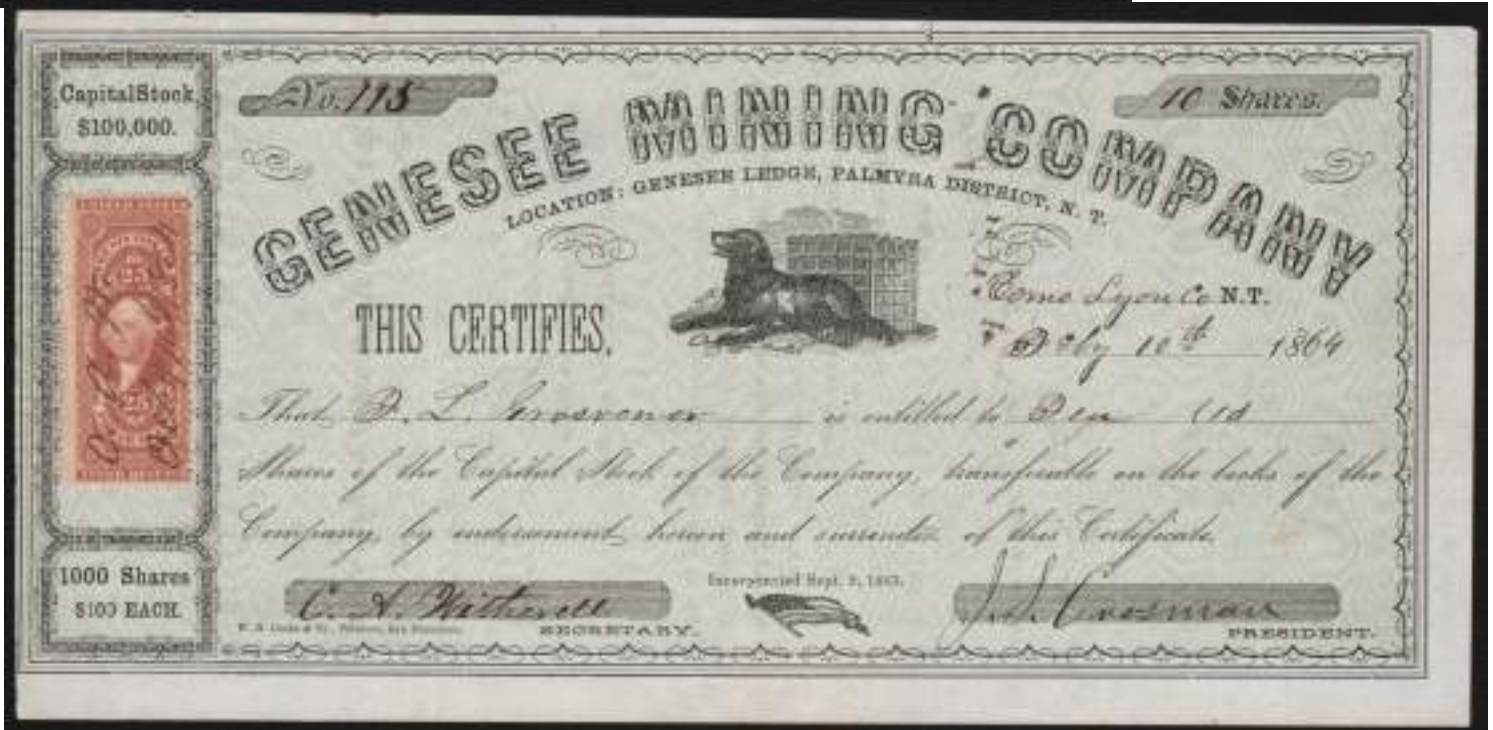 Capital Stock,
$100,000.
No. 115
10 Shares.
GENESEE MINING COMPANY
LOCATION: GENESEE LEDGE, PALMYRA DISTRICT, N. T.
Como Lyon Co N.T.
10th 1864
THIS CERTIFIES,
That L. Grosvenor is entitled to Ten (10
Shares of the Capital Stock of the Company, transferable on the books of the
Company, by endorsement hereon and surrender of this Certificate.
1000 Shares
$100 EACH.
Incorporated Sept. 9, 1863.
C. A. Witherell
SECRETARY.
J. S. Crosman
PRESIDENT.
25
25